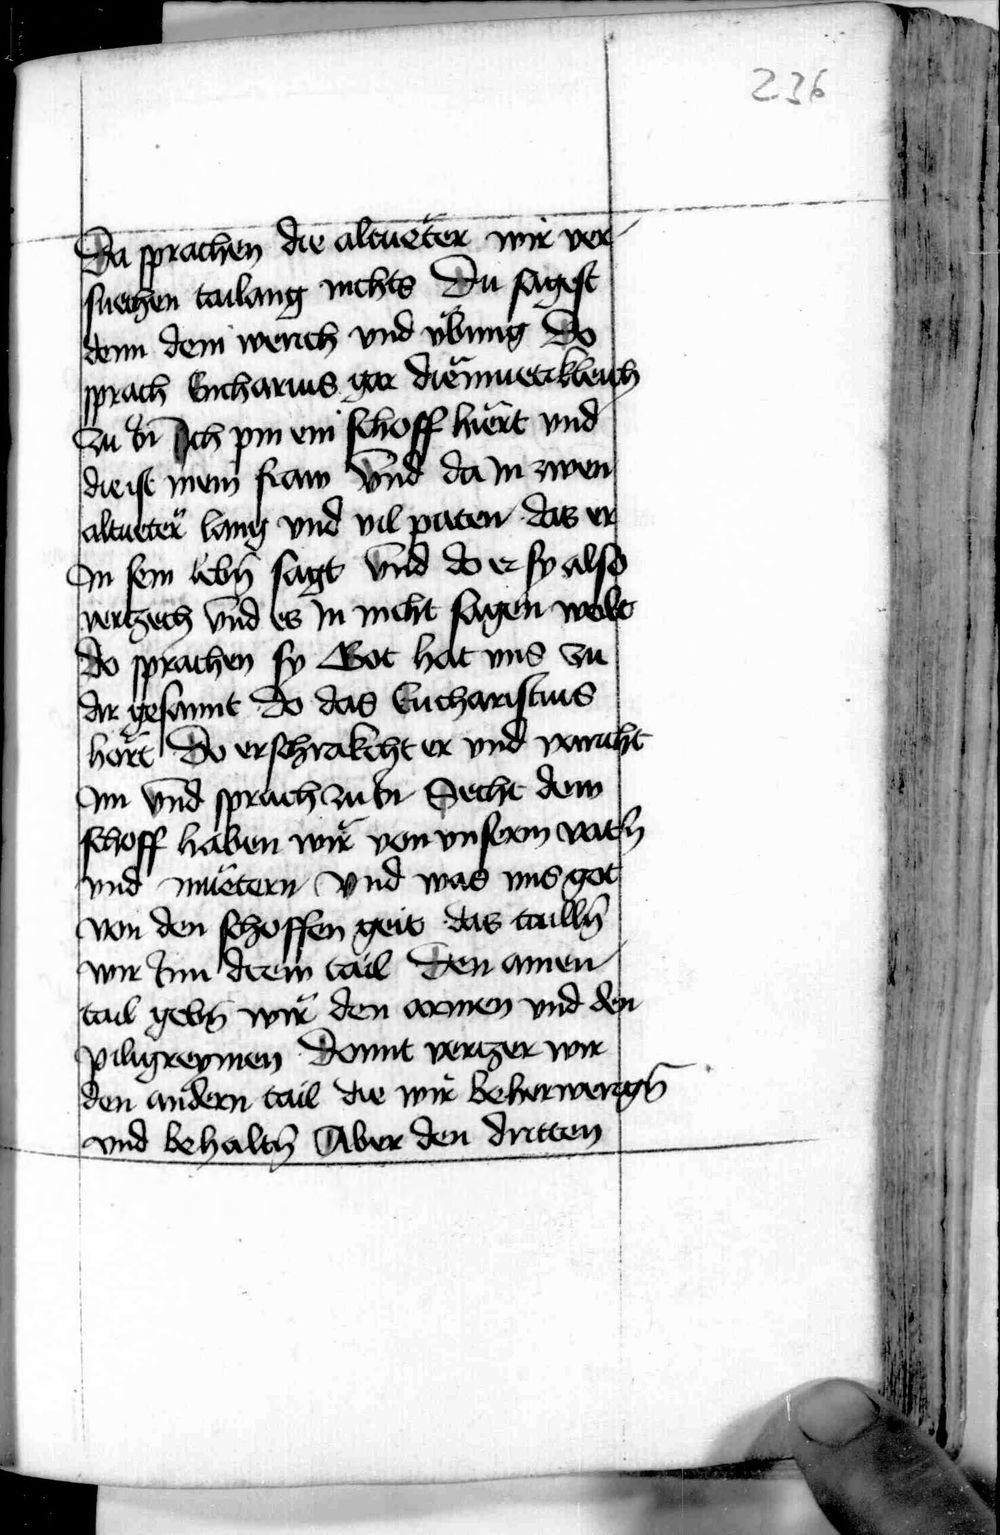 236
Da sprachen die altueter wir ver
suechen tailang nichts Du sagest
denn dein werich vnd übung Do
sprach Eucharius gar diemuetikleich
zu in Ich pin ein schoff hiert vnd
die ist mein fraw Vnd da in zwen
altueter lang vnd vil paten das er
in sein lebn̄ sagt Vnd do er sy also
verzech vnd es in nicht sagen wolt
Do sprachen sy Got hat vns zu
dir gesannt Do das Eucharistius
hört Do erschrakcht er vnd varicht
im vnd sprach zu in Secht dew
schoff haben wir von vnserm vatn̄
vnd müetern Vnd was vns got
von den schoffen geit das tailln̄
wir inn drew tail Den ainen
tail gebn̄ wir den armen vnd den
piligreymen Domit verzer wir
den andern tail die wir beherwergn̄
vnd behaltn̄ Aber den dritten